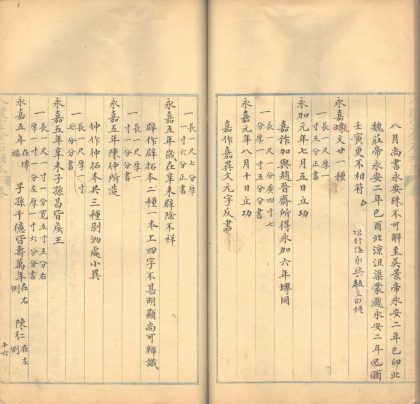 八月尚書永安殊不可解至吳景帝永安二年己卯北
魏莊帝永安二年己酉北涼沮渠蒙遜永安二年己酉
壬寅更不相符
永嘉 廿一種
永加元年七月五日立功
長一尺一分廣四寸七
寸五分正書
嘉作加與趙晉齋所得永加六年塼同
永嘉元年八月十日立功
一長一尺一寸五分
一厚一寸分書
嘉作嘉異文元字反書
永嘉五年歲在辛未辟除不祥
一長七寸五分厚
一寸六分分書
辟作辟拓本二種一本工四字不甚明顯尚可辨識
永嘉五年陳仲所造
一長一尺厚
一寸分書
仲作仲拓本共三種別泑處小異
永嘉五年辛未子孫昌皆矦王
一長一尺一寸寬五寸五分右
一厚一寸六分分書
永嘉五年 在塼 子孫千億皆壽萬年 在右側 陳仁 在左側
十六